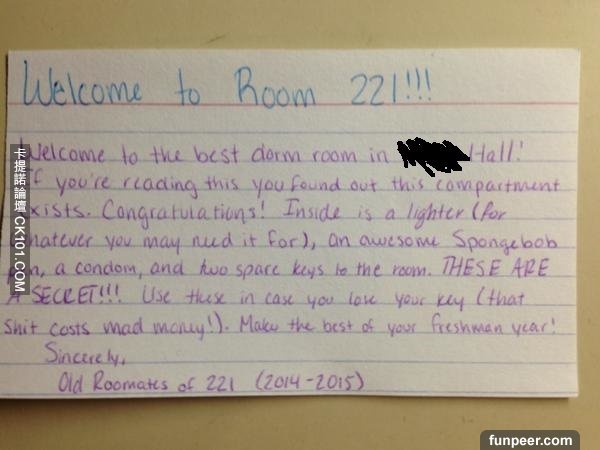 Welcome to Room 221!!!
Welcome to the best dorm room in Hall!
If you're reading this you found out this compartment
exists. Congratulations! Inside is a lighter (for
whatever you may need it for), an awesome Spongebob
a condom, and two spare keys to the room. THESE ARE
A SECRET!!! Use these in case you lose your key (that
shit costs mad money!). Make the best of your freshman year!
Sincerely,
Old Roomates of 221 (2014-2015)
卡提諾論壇 CK101.COM
funpeer.com